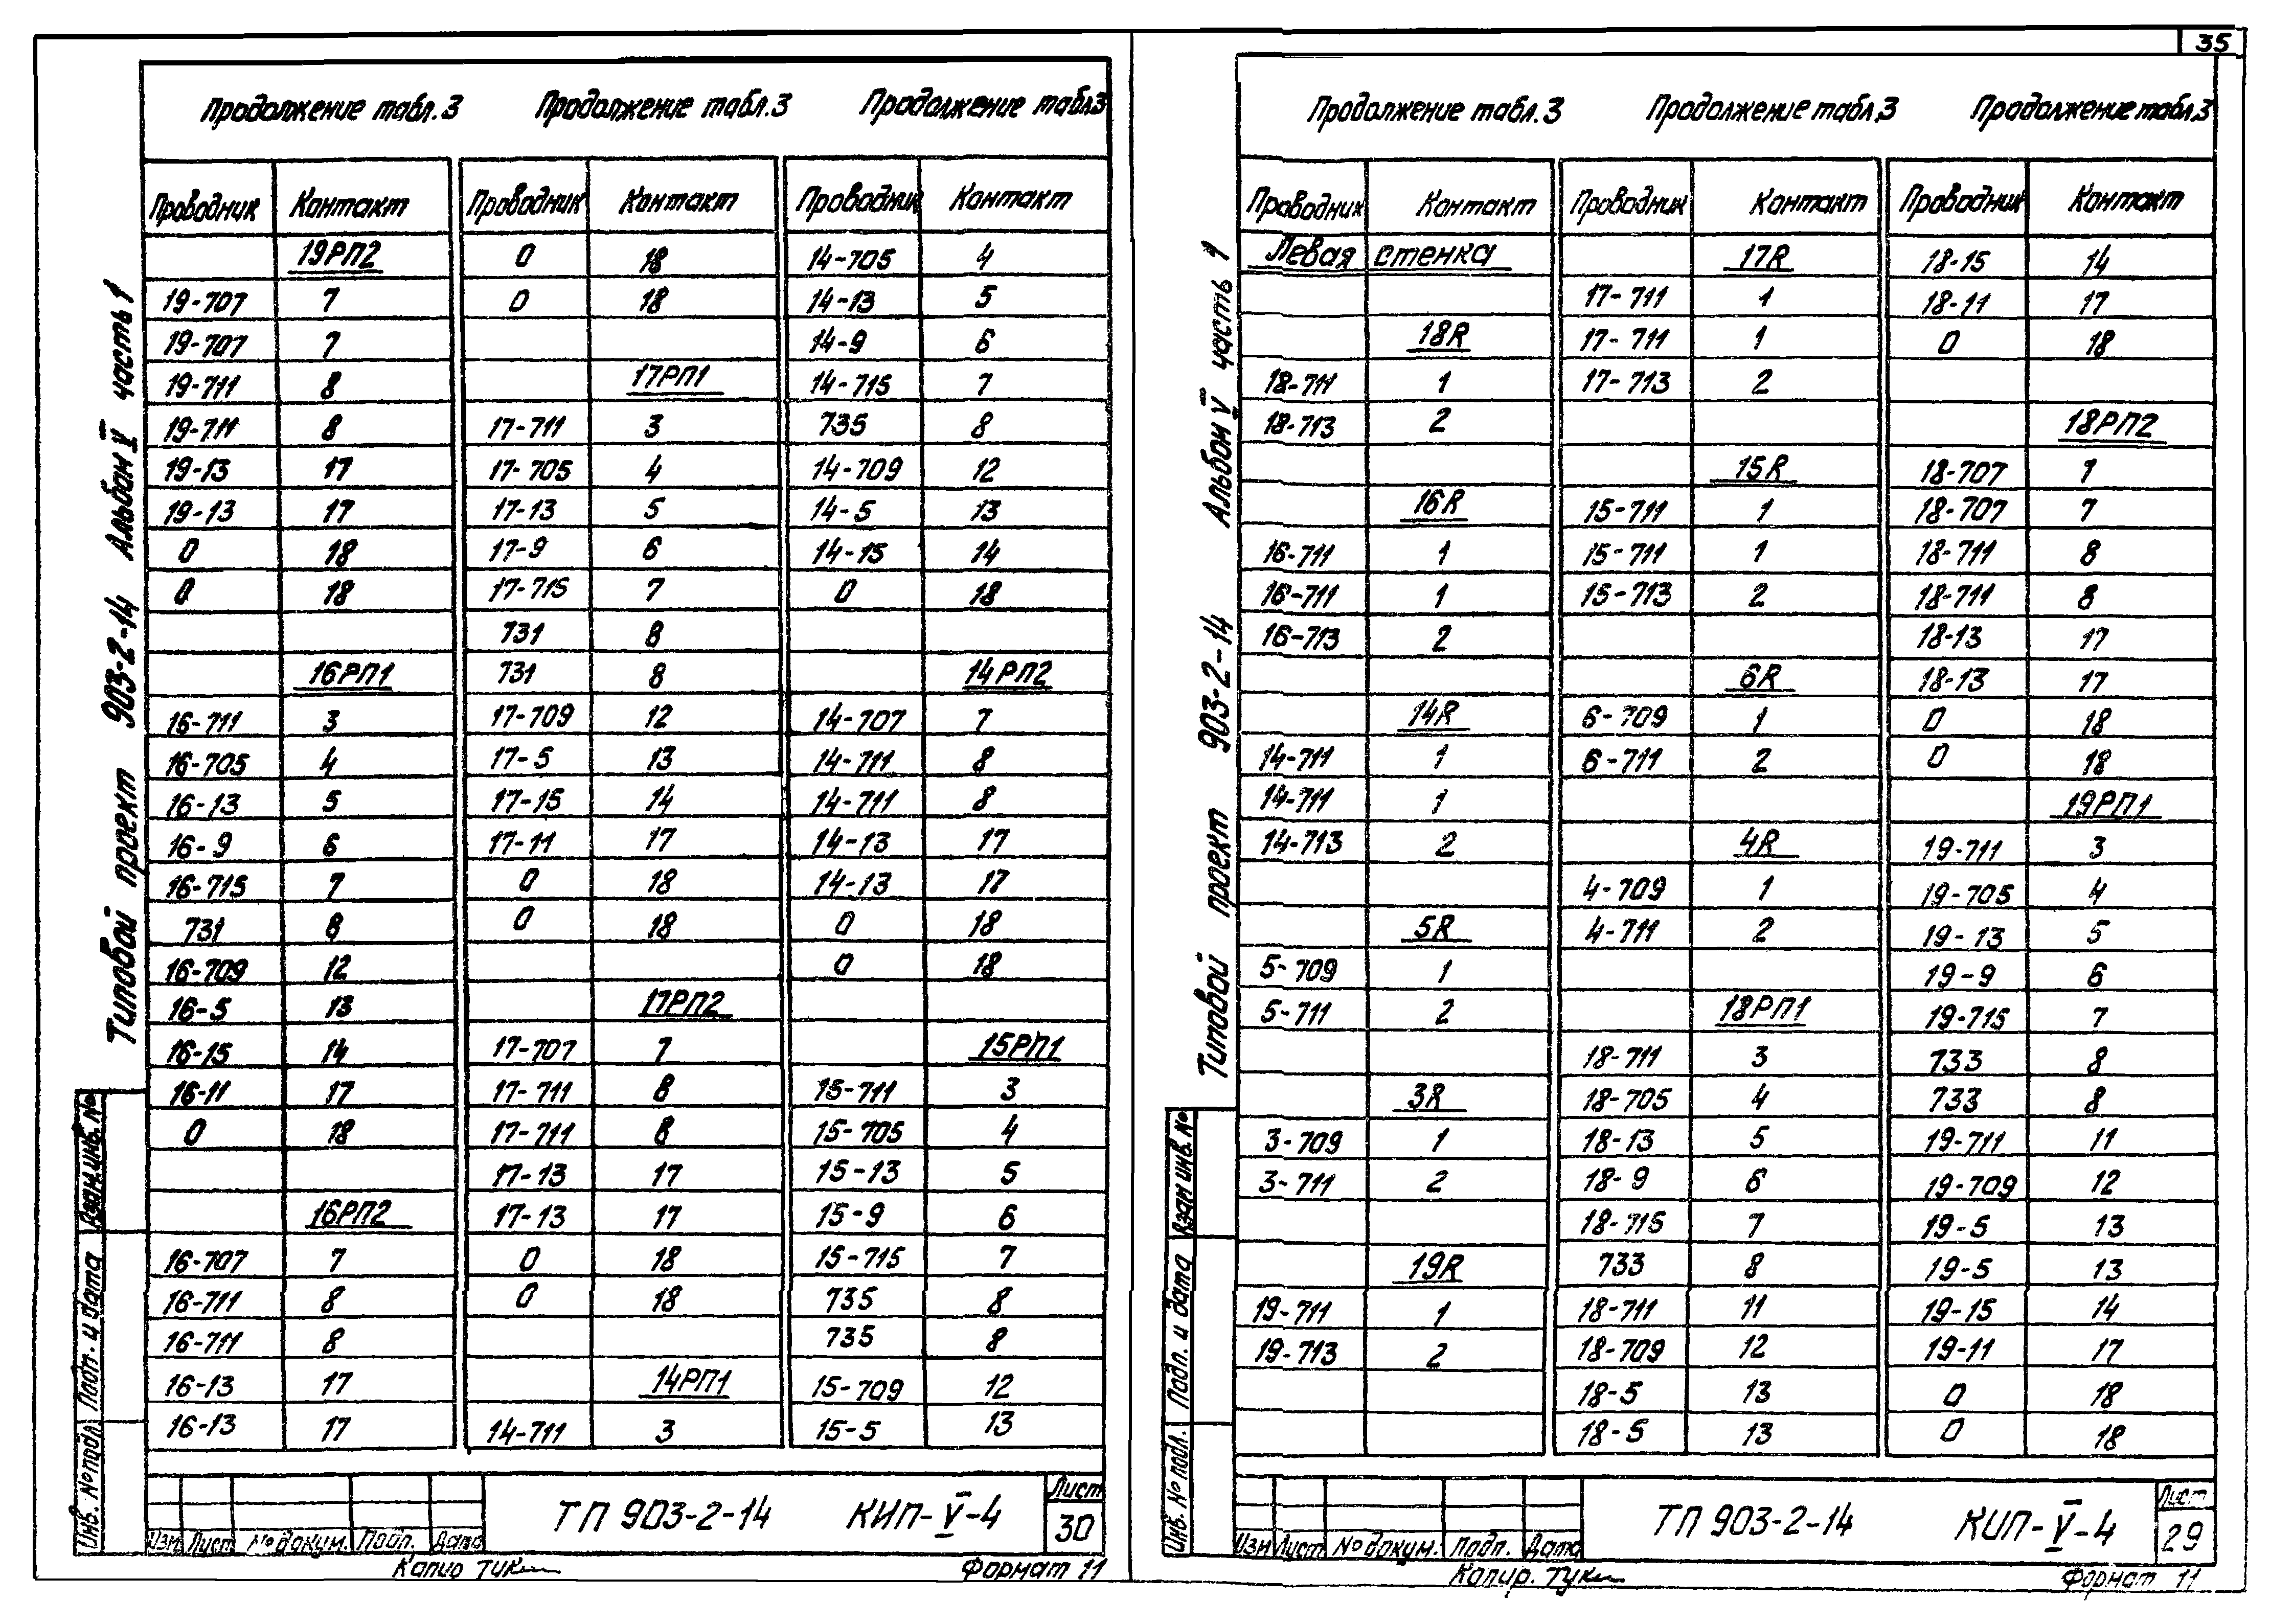 35
Типовой проект 903-2-14 Альбом V часть 1
Продолжение табл. 3 Продолжение табл. 3 Продолжение табл 3
Проводник Контакт Проводник Контакт Проводник Контакт
19РП2 0 18 14-705 4
19-707 7 0 18 14-13 5
19-707 7 14-9 6
19-711 8 17РП1 14-715 7
19-711 8 17-711 3 735 8
19-13 17 17-705 4 14-709 12
19-13 17 17-13 5 14-5 13
0 18 17-9 6 14-15 14
0 18 17-715 7 0 18
731 8
16РП1 731 8 14РП2
16-711 3 17-709 12 14-707 7
16-705 4 17-5 13 14-711 8
16-13 5 17-15 14 14-711 8
16-9 6 17-11 17 14-13 17
16-715 7 0 18 14-13 17
731 8 0 18 0 18
16-709 12 0 18
16-5 13 17РП2
16-15 14 17-707 7 15РП1
16-11 17 17-711 8 15-711 3
0 18 17-711 8 15-705 4
17-13 17 15-13 5
16РП2 17-13 17 15-9 6
16-707 7 0 18 15-715 7
16-711 8 0 18 735 8
16-711 8 735 8
16-13 17 14РП1 15-709 12
16-13 17 14-711 3 15-5 13
Инв. № подл. Подп. и дата Взам. инв. №
Изм Лист № докум. Подп. Дата
ТП 903-2-14 КИП-V-4
Лист
30
Формат 11
Типовой проект 903-2-14 Альбом V часть 1
Продолжение табл. 3 Продолжение табл. 3 Продолжение табл. 3
Проводник Контакт Проводник Контакт Проводник Контакт
Левая стенка 17R 18-15 14
17-711 1 18-11 17
18R 17-711 1 0 18
18-711 1 17-713 2
18-713 2 18РП2
15R 18-707 7
16R 15-711 1 18-707 7
16-711 1 15-711 1 18-711 8
16-711 1 15-713 2 18-711 8
16-713 2 18-13 17
6R 18-13 17
14R 6-709 1 0 18
14-711 1 6-711 2 0 18
14-711 1 19РП1
14-713 2 4R 19-711 3
4-709 1 19-705 4
5R 4-711 2 19-13 5
5-709 1 19-9 6
5-711 2 18РП1 19-715 7
18-711 3 733 8
3R 18-705 4 733 8
3-709 1 18-13 5 19-711 11
3-711 2 18-9 6 19-709 12
18-715 7 19-5 13
19R 733 8 19-5 13
19-711 1 18-711 11 19-15 14
19-713 2 18-709 12 19-11 17
18-5 13 0 18
18-5 13 0 18
Инв. № подл. Подп. и дата Взам инв. №
Изм Лист № докум. Подп. Дата
ТП 903-2-14 КИП-V-4
Лист
29
Копир.
Формат 11